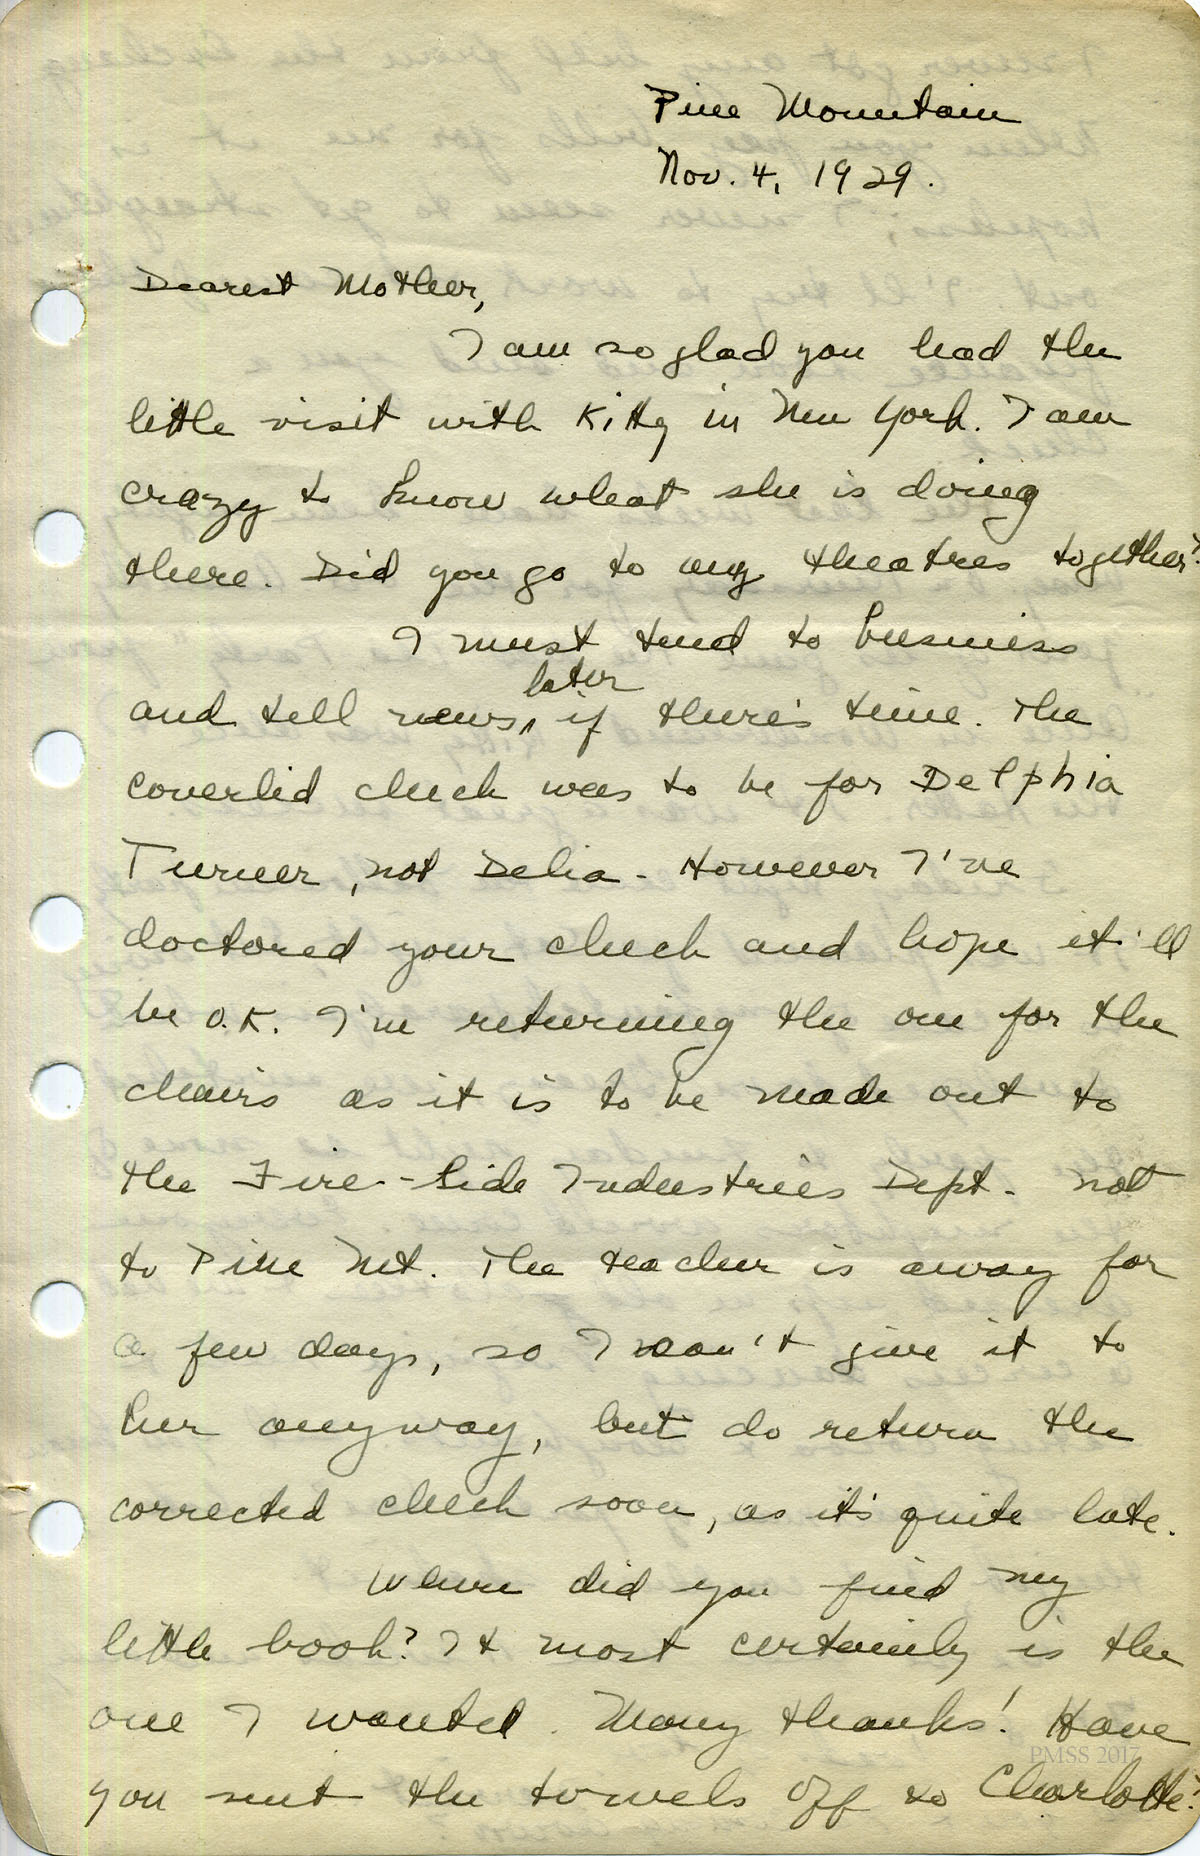 Pine Mountain
Nov. 4, 1929.
Dearest Mother,
I am so glad you had the
little visit with Kitty in New York. I am
crazy to know what she is doing
there. Did you go to any theatres together?
I must tend to business
later
and tell news, if there's time. The
coverlid check was to be for Delphia
Turner, not Delia. However I've
doctored your check and hope it'll
be O.K. I'm returning the one for the
chairs as it is to be made out to
the Fire-Side Industries Dept. not
to Pine Mt. The teacher is away for
a few days, so I won't give it to
her anyway, but do return the
corrected check soon, as it's quite late.
Where did you find my
little book? It most certainly is the
one I wanted. Many thanks! Have
PMSS 2017
you sent the towels off to Charlotte?